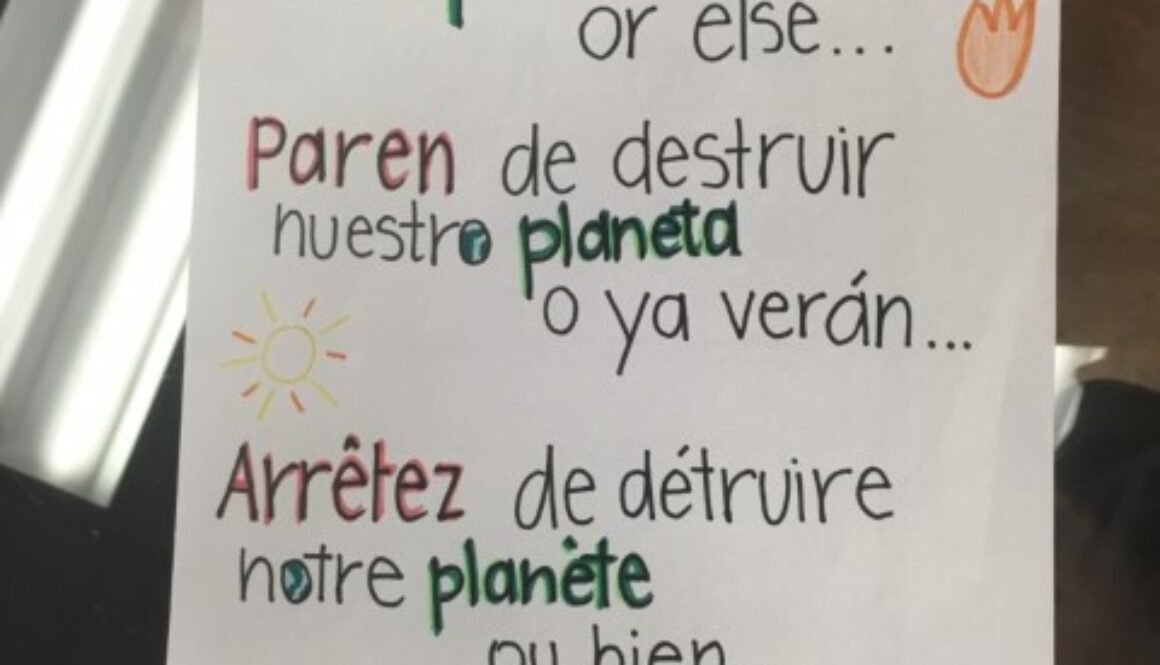 or else...
Paren de destruir
nuestro planeta
o ya verán...
Arrêtez de détruire
notre planète
ou bien